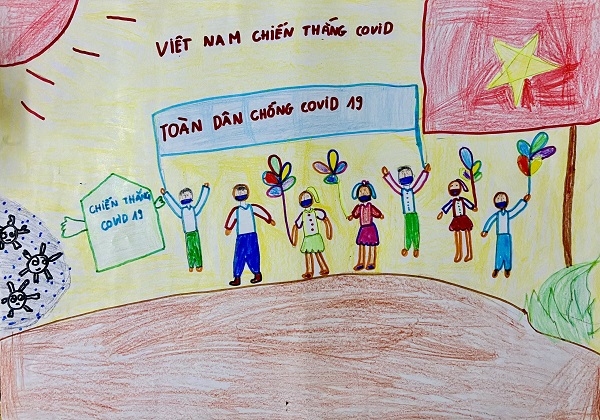 VIỆT NAM CHIẾN THẮNG COViD
TOÀN DÂN CHỐNG COViD 19
CHIẾN THẮNG
COViD 19